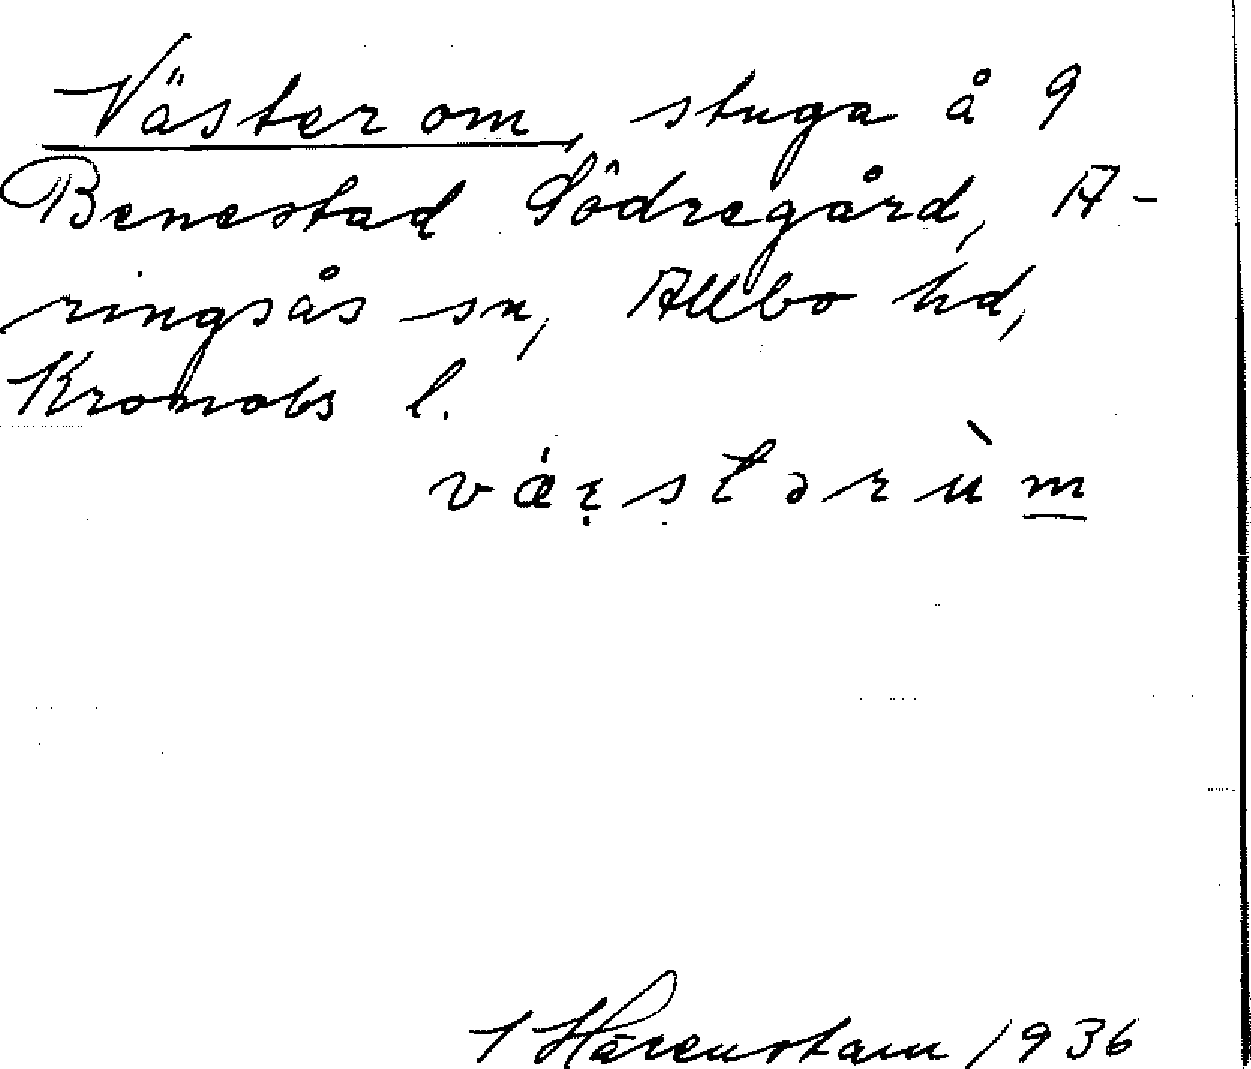 Väster om, stuga å 9
Benestad Södregård, A-
ringsås sn, Allbo hd,
Kronobs l.
Härenstam 1936